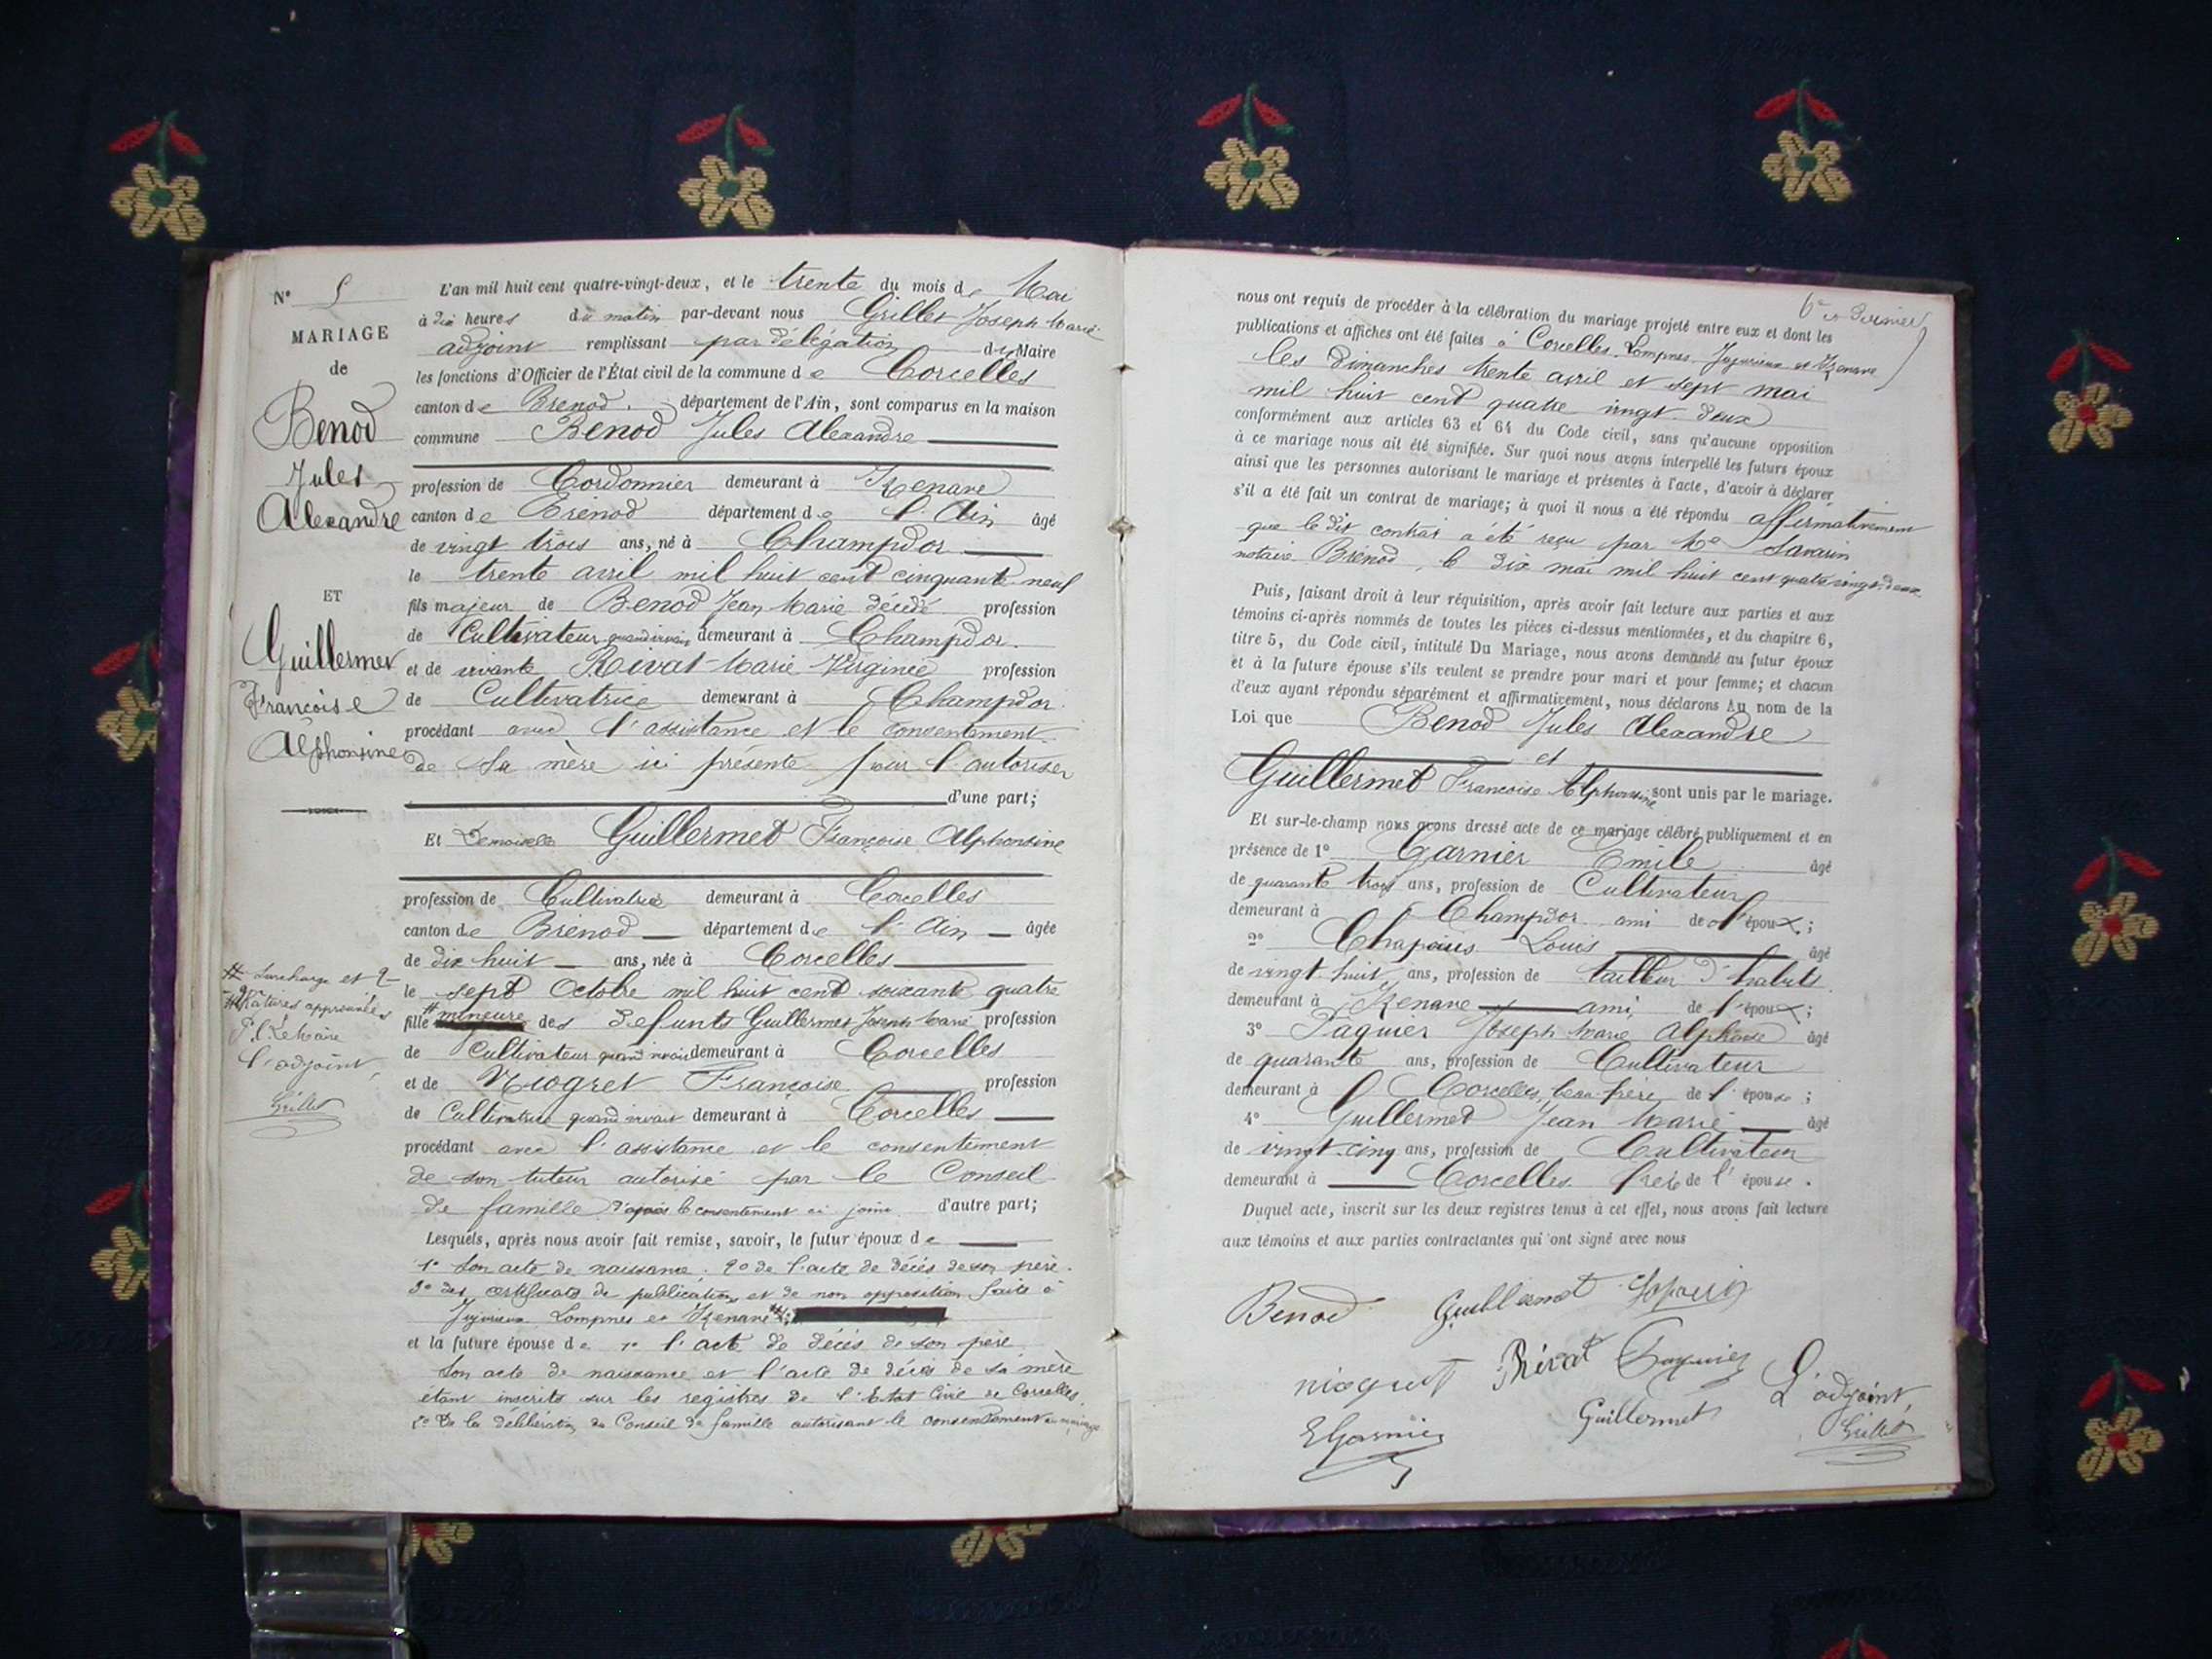 N° 5
MARIAGE
de
Benod
Jules
Alexandre
ET
Guillermet
Françoise
Alphonsine
# Surcharge et 2
ratures approuvées
P. le Maire
l'adjoint,
Grillet
L'an mil huit cent quatre-vingt-deux, et le trente du mois de Mai
à dix heures du matin par-devant nous Grillet Joseph Marie
adjoint remplissant par délégation du Maire
les fonctions d'Officier de l'État civil de la commune de Corcelles
canton de Brenod. département de l'Ain, sont comparus en la maison
commune Benod Jules Alexandre
profession de Cordonnier demeurant à Izenave
canton de Brénod département de l'Ain âgé
de vingt trois ans, né à Champdor
le trente avril mil huit cent cinquante neuf
fils majeur de Benod Jean Marie décédé profession
de Cultivateur quand vivait demeurant à Champdor.
et de vivante Rivat Marie Virginie profession
de Cultivatrice demeurant à Champdor.
procédant avec l'assistance et le consentement
de sa mère ici présente pour l'autoriser
d'une part;
Et Demoiselle Guillermet Françoise Alphonsine
profession de Cultivatrice demeurant à Corcelles
canton de Brénod département de l'Ain âgée
de dix huit ans, née à Corcelles
le sept Octobre mil huit cent soixante quatre
fille # mineure des défunts Guillermet Joseph Marie profession
de Cultivateur quand vivait demeurant à Corcelles
et de Niogret Françoise profession
de Cultivatrice quand vivait demeurant à Corcelles
procédant avec l'assistance et le consentement
de son tuteur autorisé par le Conseil
de famille d'après le consentement ci joint d'autre part;
Lesquels, après nous avoir fait remise, savoir, le futur époux de
1° Son acte de naissance. 2° de l'acte de décès de son père.
3° des certificats de publication et de non opposition faite à
Jujurieux Lompnes et Izenave
et la future épouse de 1° l'acte de décès de son père
Son acte de naissance et l'acte de décès de sa mère
étant inscrits sur les registres de l'Etat Civil de Corcelles.
2° De la délibération du Conseil de famille autorisant le consentement au mariage
6e et dernier
nous ont requis de procéder à la célébration du mariage projeté entre eux et dont les
publications et affiches ont été faites à Corcelles Lompnes Jujurieux et Izenave
les dimanches trente avril et sept mai
mil huit cent quatre vingt deux
conformément aux articles 63 et 64 du Code civil, sans qu'aucune opposition
à ce mariage nous ait été signifiée. Sur quoi nous avons interpellé les futurs époux
ainsi que les personnes autorisant le mariage et présentes à l'acte, d'avoir à déclarer
s'il a été fait un contrat de mariage; à quoi il nous a été répondu affirmativement
que le dit contrat a été reçu par Me Savarin
notaire Brénod, le dix mai mil huit cent quatre vingt deux
Puis, faisant droit à leur réquisition, après avoir fait lecture aux parties et aux
témoins ci-après nommés de toutes les pièces ci-dessus mentionnées, et du chapitre 6,
titre 5, du Code civil, intitulé Du Mariage, nous avons demandé au futur époux
et à la future épouse s'ils veulent se prendre pour mari et pour femme; et chacun
d'eux ayant répondu séparément et affirmativement, nous déclarons Au nom de la
Loi que Benod Jules Alexandre
et
Guillermet Françoise Alphonsine sont unis par le mariage.
Et sur-le-champ nous avons dressé acte de ce mariage célébré publiquement et en
présence de 1° Garnier Emile âgé
de quarante trois ans, profession de Cultivateur
demeurant à Champdor ami de l'époux;
2° Chapuis Louis âgé
de vingt huit ans, profession de tailleur d'habits
demeurant à Izenave ami de l'époux;
3° Paquier Joseph Marie Alphonse âgé
de quarante ans, profession de Cultivateur
demeurant à Corcelles, beau frère de l'épouse;
4° Guillermet Jean Marie âgé
de vingt-cinq ans, profession de Cultivateur
demeurant à Corcelles frère de l'épouse.
Duquel acte, inscrit sur les deux registres tenus à cet effet, nous avons fait lecture
aux témoins et aux parties contractantes qui ont signé avec nous
Benod Guillermet
Rivat Paquier L'adjoint,
EGarnier Guillermet Grillet